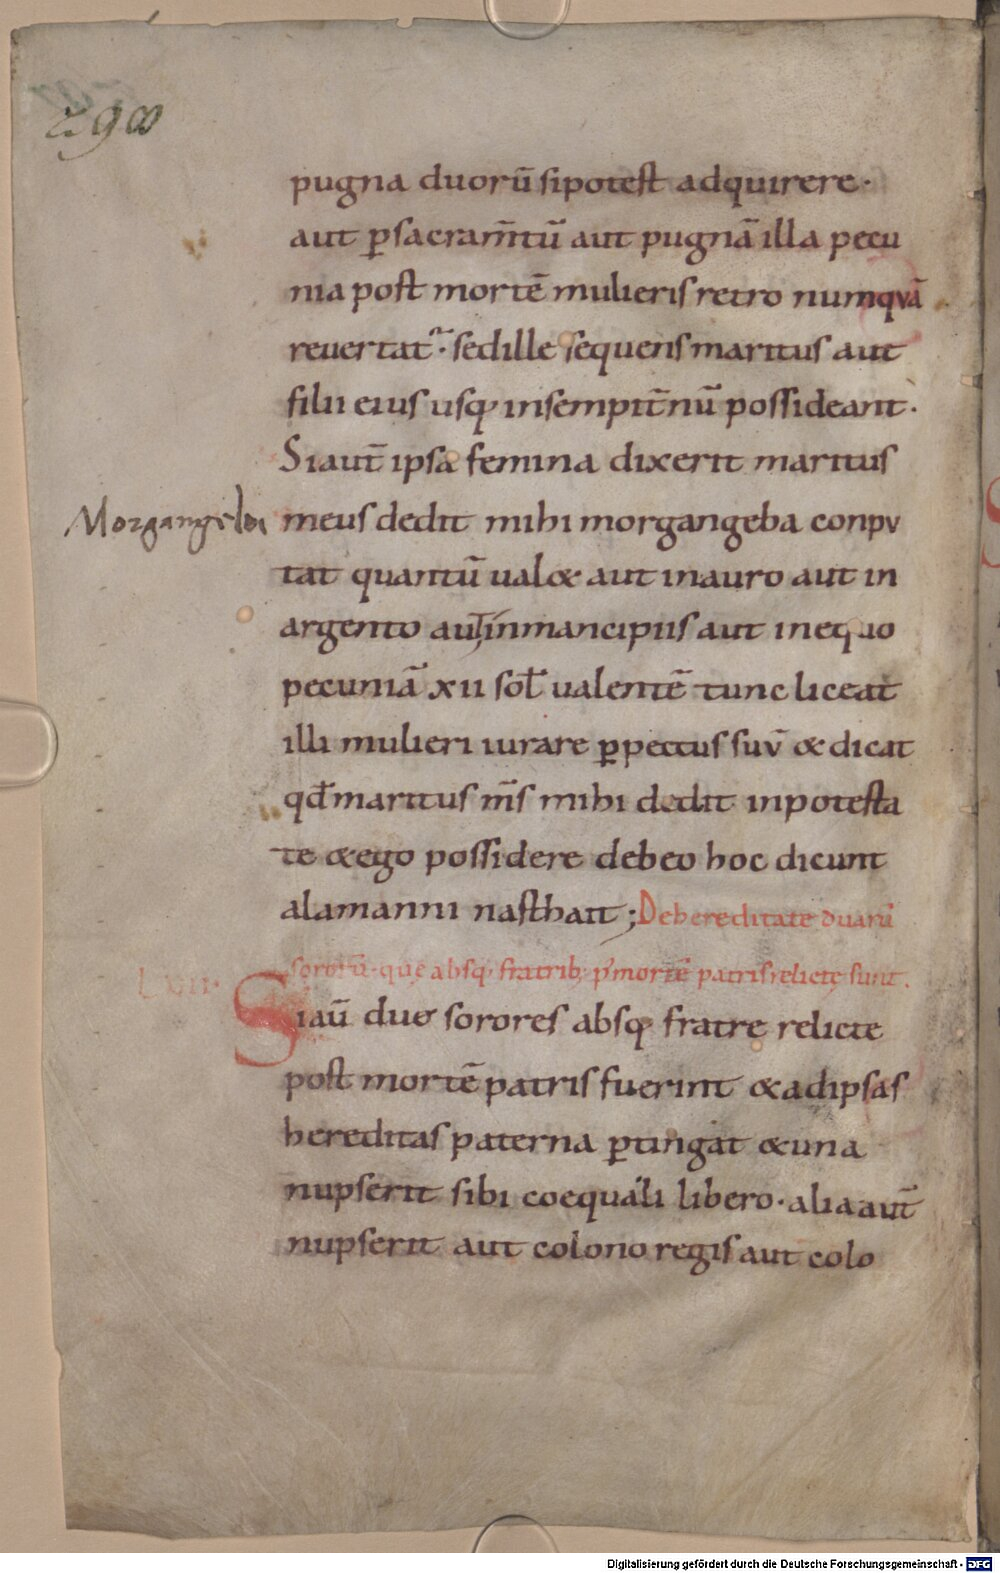 298
pugna duorū si potest adquirere·
aut p̱ sacram̄tū aut pugnā illa pecu
nia post mortē mulieris retro numqvā
revertat᷑· sed ille sequens maritus aut
filii eius usq; in sempit̄nū possideant·
Si aut̄ ipsa femina dixerit maritus
Morgangeba
meus dedit mihi morgangeba conpv
tat quantū valet aut in auro aut in
argento aut in mancipiis aut in equo
pecuniā xii sol̄ valentē tunc liceat
illi mulieri iurare p̱ pectus suv̄ & dicat
qđ maritus m̄s mihi dedit in potesta
te & ego possidere debeo hoc dicunt
alamanni nasthait; De hereditate duarū
sororū· quę absq; fratrib; p̄ mortē patris relictę sunt.
LVII·
Si aū due sorores absq; fratre relicte
post mortē patris fuerint & ad ipsas
hereditas paterna p̱tingat & una
nupserit sibi coequali libero· alia aut̄
nupserit aut colono regis aut colo
Digitalisierung gefördert durch die Deutsche Forschungsgemeinschaft - DFG